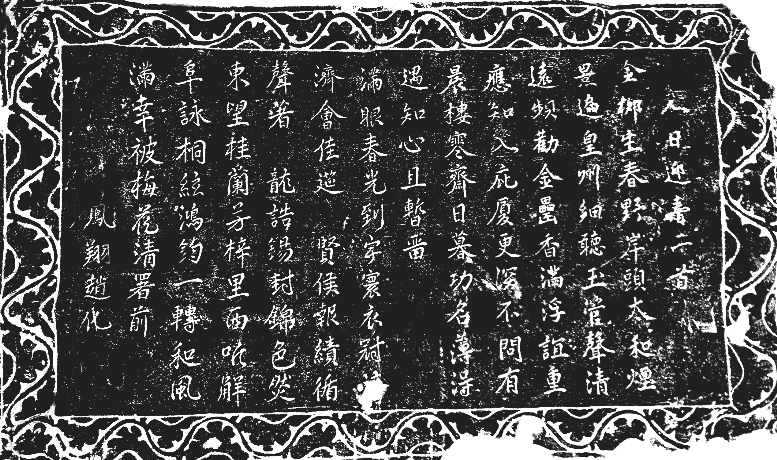 人日迎春六首
金鄉生春野岸頭太和煙
景過皇州細聽玉管聲清
遠頻勸金罍香滿浮誼重
應知入庇廈更深不問有
晨樓寒齋日暮功名薄得
遇知心且暫留
滿眼春光到宇寰衣冠
濟會佳遊賢侯報績循
聲著龍誥錫封錦色熒
東望桂蘭子梓里西吟解
阜詠桐絃鴻鈞一轉和風
滿幸被梅花清署前
鳳翔趙化